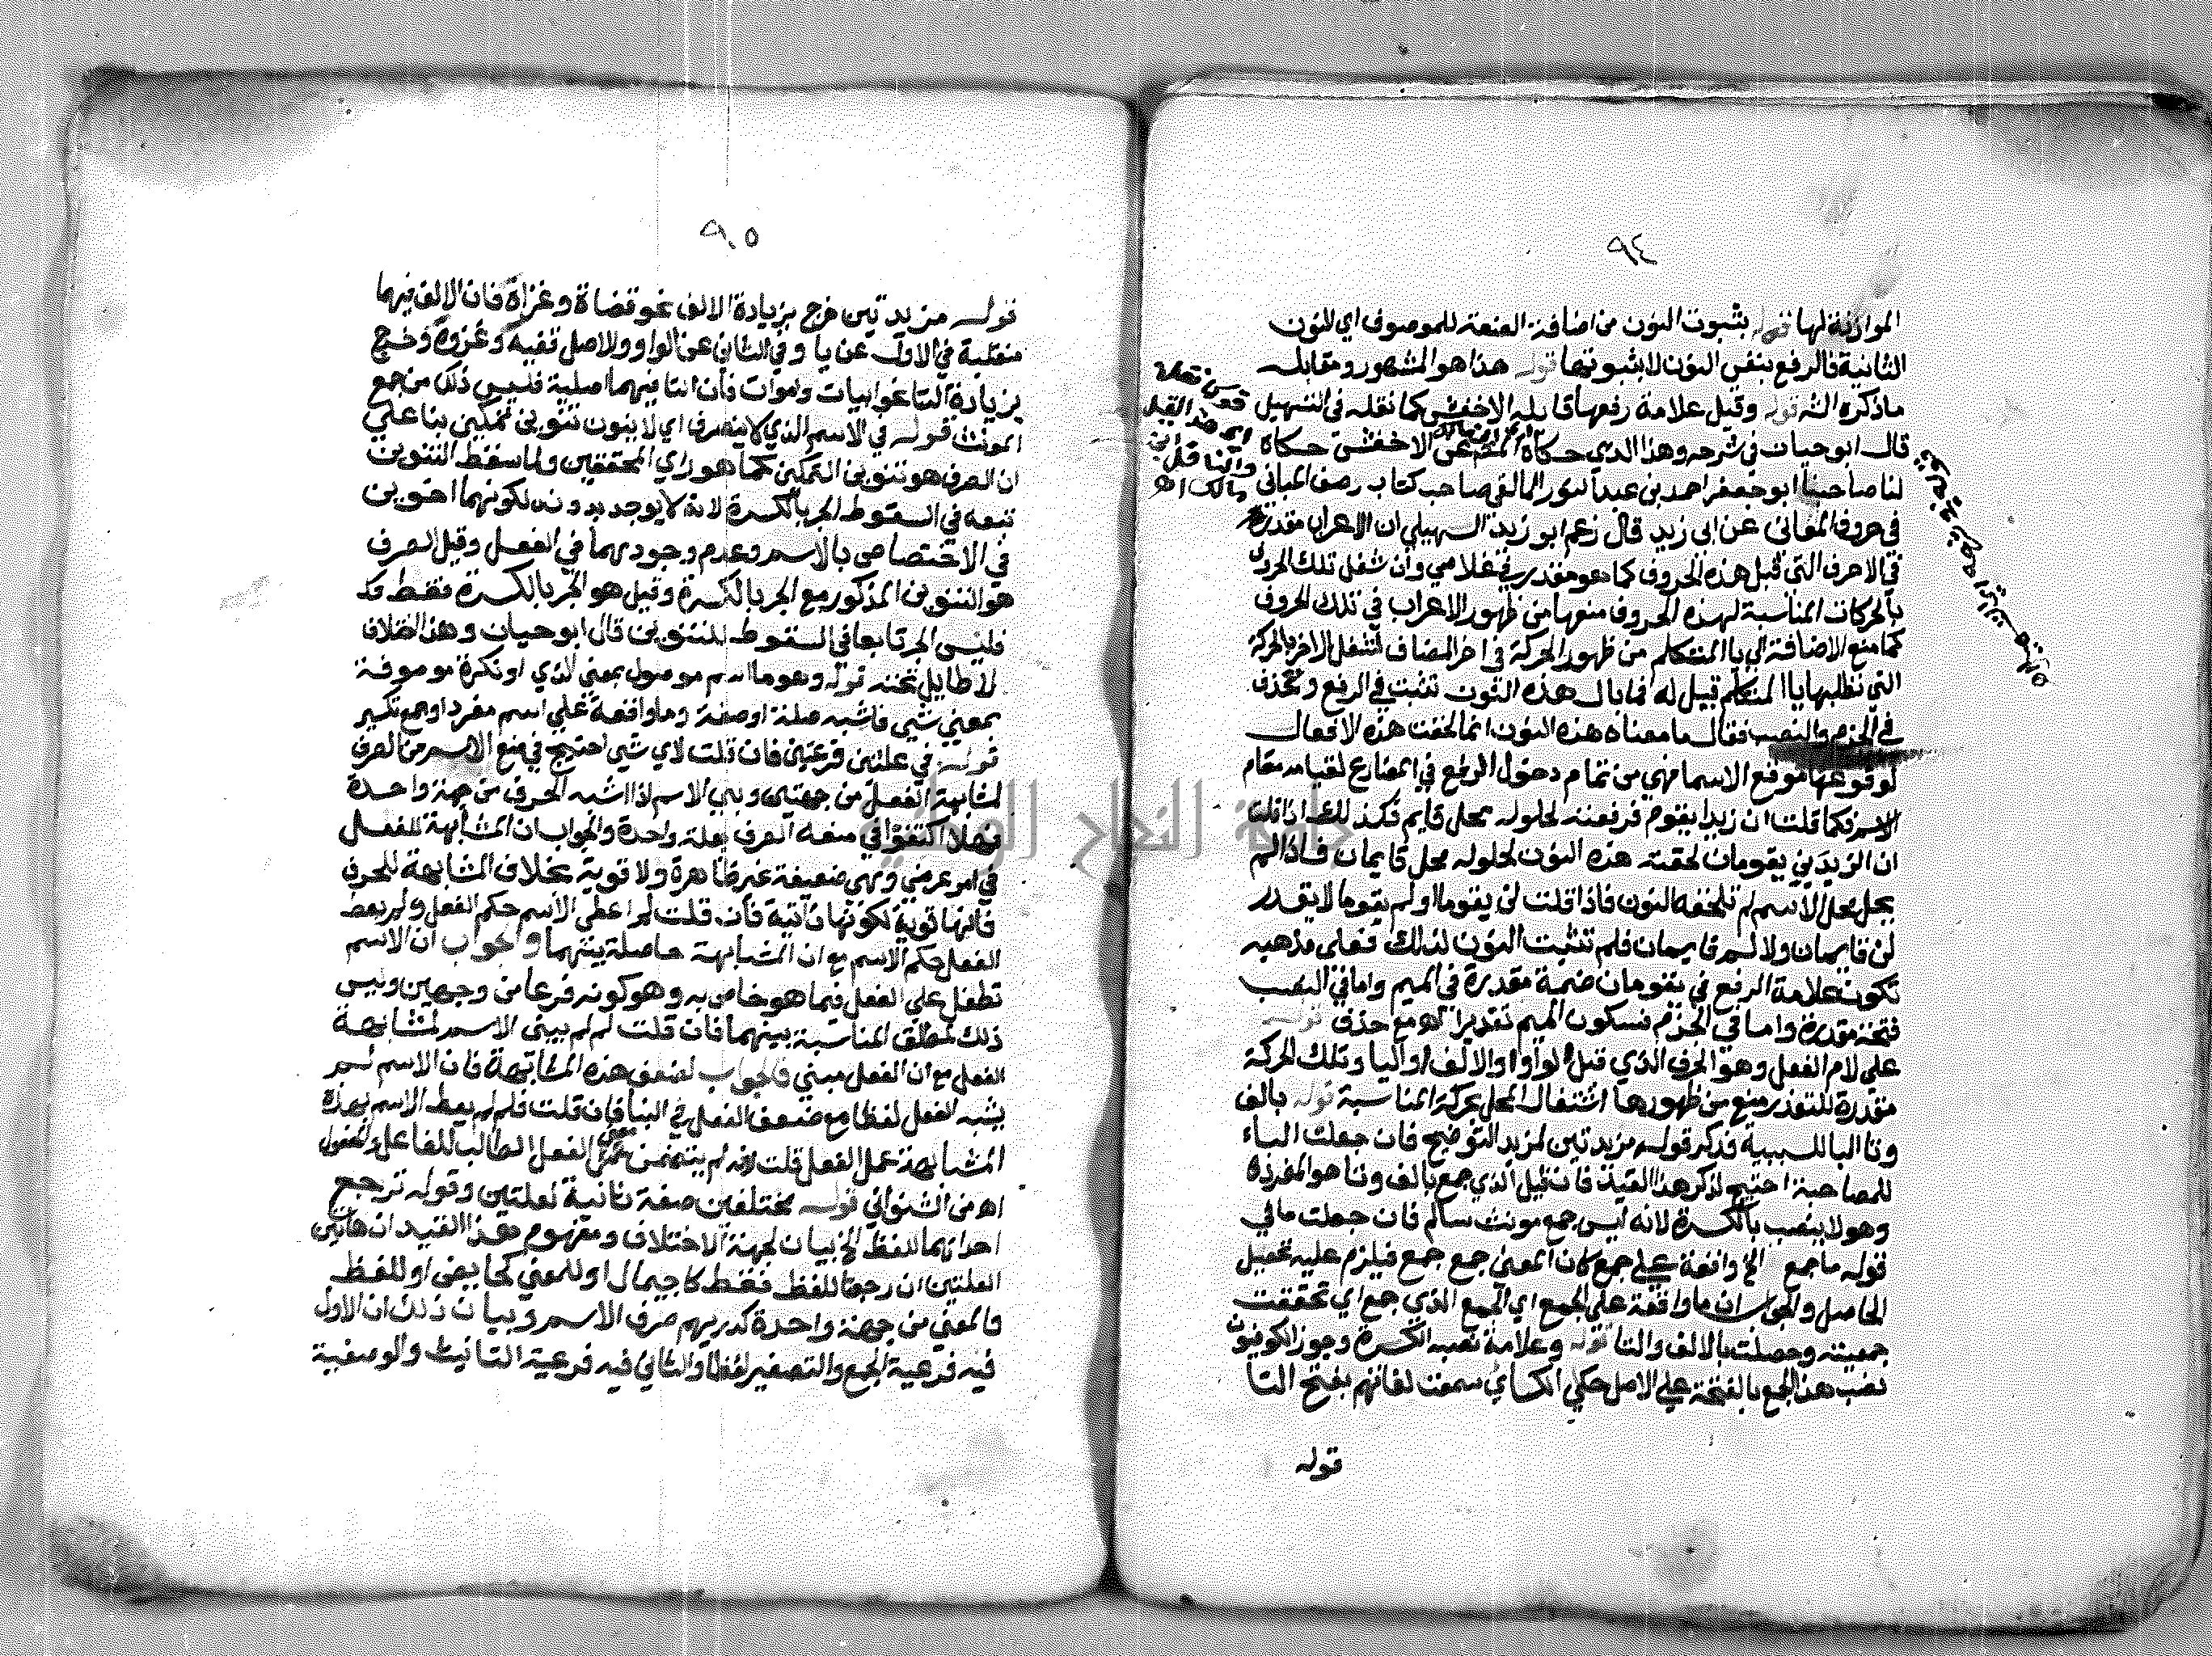 ٩٤
الموازنة لها قوله بثبوت النون من اضافة الصفة للموصوف اي للنون
الثانية فالرفع بنفس النون لا بثبوتها قوله هذا هو المشهور ومقابله
ماذكره الشه قوله وقيل علامة رفعها قايله الاخفش كما نقله في التسهيل
قال ابو حيان في شرحه وهذا الذي حكاه المصر عن الاخفش حكاه
لنا صاحبنا ابو جعفر احمد بن عبد النور المالقي صاحب كتاب رصف المباني
في حروف المعاني عن ابى زيد قال زعم ابو زيد السهيلي ان الاعراب مقدر
في الاحرف التى قبل هذه الحروف كما هو مقدر في غلامي وان شغل تلك الحروف
بالحركات المناسبة لهذه الحروف منعها من ظهور الاعراب في تلك الحروف
كما منع الاضافة الي يا المتكلم من ظهور الحركة في اخر المضاف لشغل الاخر بالحركة
التي تطلبها يا المتكلم قيل له فما بال هذه النون تثبت في الرفع وتحذف
في الجزم والنصب فقال ما معناه هذه النون انما لحقت هذه الافعال
لوقوعها موقع الاسما فهي من تمام دخول الرفع في المضارع لقيامه مقام
الاسم فكما قلت ان زيدا يقوم فرفعته لحلوله محل قايم فكذلك اذا قلت
ان الزيدين يقومان لحقته هذه النون لحلوله محل قايمان فاذا لم
يحل محل الاسم لم تلحقه النون فاذا قلت لن يقوما اولم يقوما لا يقدر
لن قايمان ولا لم قايمان فلم تثبت النون لذلك فعلى مذهبه
تكون علامة الرفع في يقومان ضمة مقدرة في الميم واما في النصب
فتحة مقدرة واما في الجزم فسكون الميم تقديرا اهو مع حذف قوله
علي لام الفعل وهو الحرف الذي قبل الواو او الالف او اليا وتلك الحركة
مقدرة للتعذر منع من ظهورها اشتغال المحل بحركة المناسبة قوله بالف
وتا البا للسببية فذكر قوله مزيدتين لمزيد التوضيح فان جعلت الباء
للمصاحبة احتيج لذكر هذا القيد فان قيل الذي جمع بالف وتا هو المفرد
وهو لا ينصب بالكسرة لانه ليس جمع مونث سالم فان جعلت ما في
قوله ما جمع الخ واقعة علي جمع كان المعني جمع جمع فيلزم عليه تحصيل
الحاصل والجواب ان ما واقعة علي الجمع اي الجمع الذي جمع اي تحققت
جمعيته وحصلت بالالف والتا قوله وعلامة نصبه الكسرة وجوز الكوفيون
نصب هذا الجمع بالفتحة علي الاصل حكي الكساي سمعت لغاتهم بفتح التا
قوله
٩٥
قوله مزيدتين خرج بزيادة الالف نحو قضاة وغزاة فان الالف فيهما
منقلبة في الاول عن يا وفي الثاني عن الواو والاصل قضية وغزوة وخرج
بزيادة التا نحو ابيات واموات فان التا فيهما اصلية فليس ذلك من جمع
المونث قوله في الاسم الذي لا ينصرف اي لا ينون تنوين تمكين بنا علي
ان الصرف هو تنوين التمكين كما هو راي المحققين ولما سقط التنوين
تبعه في السقوط الجر بالكسرة لانه لا يوجد بدونه لكونهما اخوين
في الاختصاص بالاسم وعدم وجودهما في الفعل وقيل الصرف
هو التنوين المذكور مع الجر بالكسرة وقيل هو الجر بالكسرة فقط قد
فليس الجر تابعا في السقوط للتنوين قال ابو حيان وهذا الخلاف
لا طايل تحته قوله وهو ما اسم موصول بمعني الذي او نكرة موصوفة
بمعني شي فاشبه صلة او صفة وما واقعة علي اسم مفرد او جمع تكسير
قوله في علتين فرعيتين فان قلت لاي شي احتيج في منع الاسم من الصرف
لمشابهة الفعل من جهتين وبني الاسم اذا اشبه الحرف من جهة واحدة
فهلا اكتفوا في منعه الصرف بعلة واحدة والجواب ان المشابهة للفعل
في امر عرضي وهي ضعيفة غير ظاهرة ولا قوية بخلاف المشابهة للحرف
فانها قوية لكونها ذاتية فان قلت لم اعطى الاسم حكم الفعل ولم يعط
الفعل حكم الاسم مع ان المشابهة حاصلة بينهما والجواب ان الاسم
تطفل علي الفعل فيما هو خاص به وهو كونه فرعا من وجهين وليس
ذلك لمطلق المناسبة بينهما فان قلت لم لم يبنى الاسم لمشابهة
الفعل مع ان الفعل مبني فالجواب لضعف هذه المشابهة فان الاسم لم
يشبه الفعل لفظا مع ضعف الفعل في البنا فان قلت فلم لم يعط الاسم بهذه
المشابهة عمل الفعل قلت لانه لم يتضمن معنى الفعل الطالب للفاعل والمفعول
اهـ من الشنواني قوله مختلفين صفة ثانية لعلتين وقوله ترجع
احداهما للفظ الخ بيان لجهة الاختلاف ومفهوم هذا القيد ان هاتين
العلتين ان رجعتا للفظ فقط كاجيمال او للمعني كحايض او للفظ
والمعني من جهة واحدة كدريهم صرف الاسم وبيان ذلك ان الاول
فيه فرعية الجمع والتصغير لفظا والثاني فيه فرعية التانيث والوصفية
جامعة النجاح الوطنية